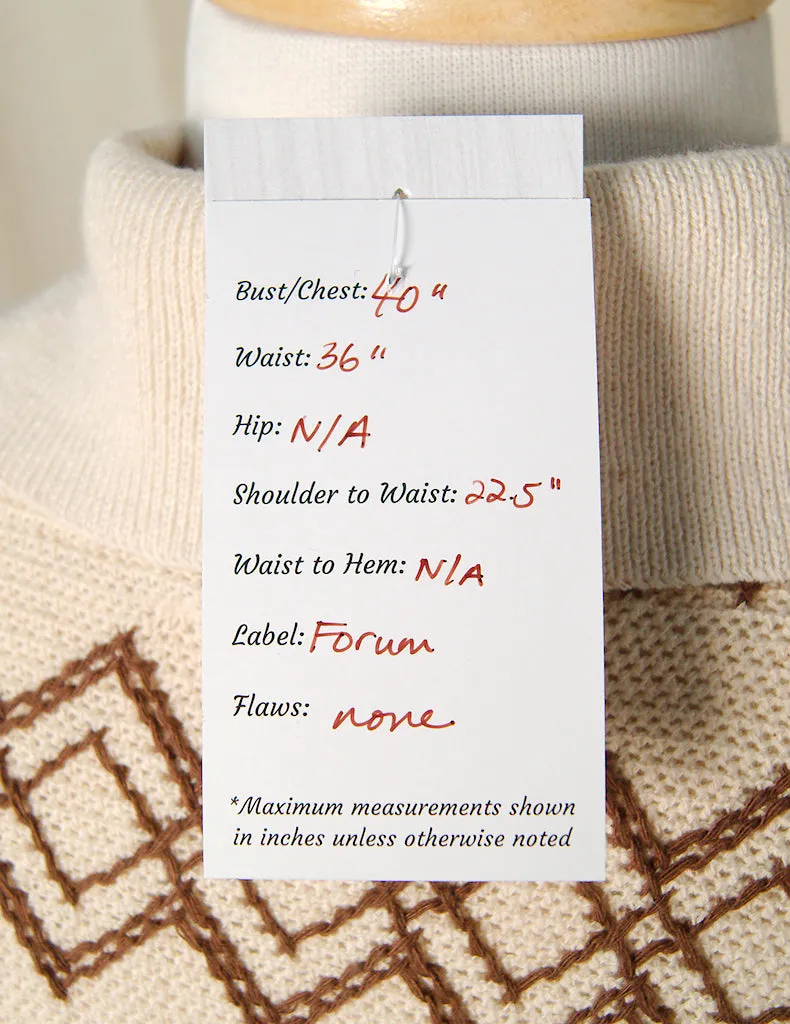 Bust/Chest: 40"
Waist: 36"
Hip: N/A
Shoulder to Waist: 22.5"
Waist to Hem: N/A
Label: Forum
Flaws: none
*Maximum measurements shown
in inches unless otherwise noted